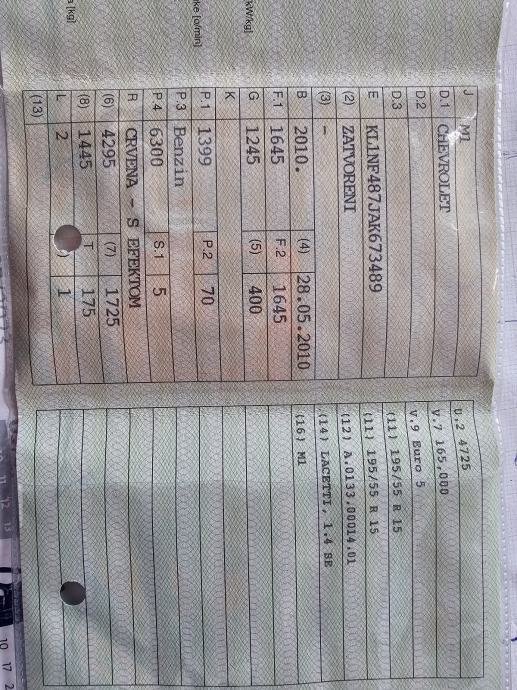 J M1
D.1 CHEVROLET
D.2
D.3
E KL1NF487JAK673489
(2) ZATVORENI
(3) -
B 2010. (4) 28.05.2010
F.1 1645 F.2 1645
G 1245 (5) 400
K
P.1 1399 P.2 70
P.3 Benzin
P.4 6300 S.1 5
R CRVENA - S EFEKTOM
(6) 4295 (7) 1725
(8) 1445 T 175
L 2 1
(13)
U.2 4725
V.7 165,000
V.9 Euro 5
(11) 195/55 R 15
(11) 195/55 R 15
(12) A.0133,00014.01
(14) LACETTI, 1.4 SE
(16) M1
kW/kg]
[o/min]
[kg]
11 12 13
10 17